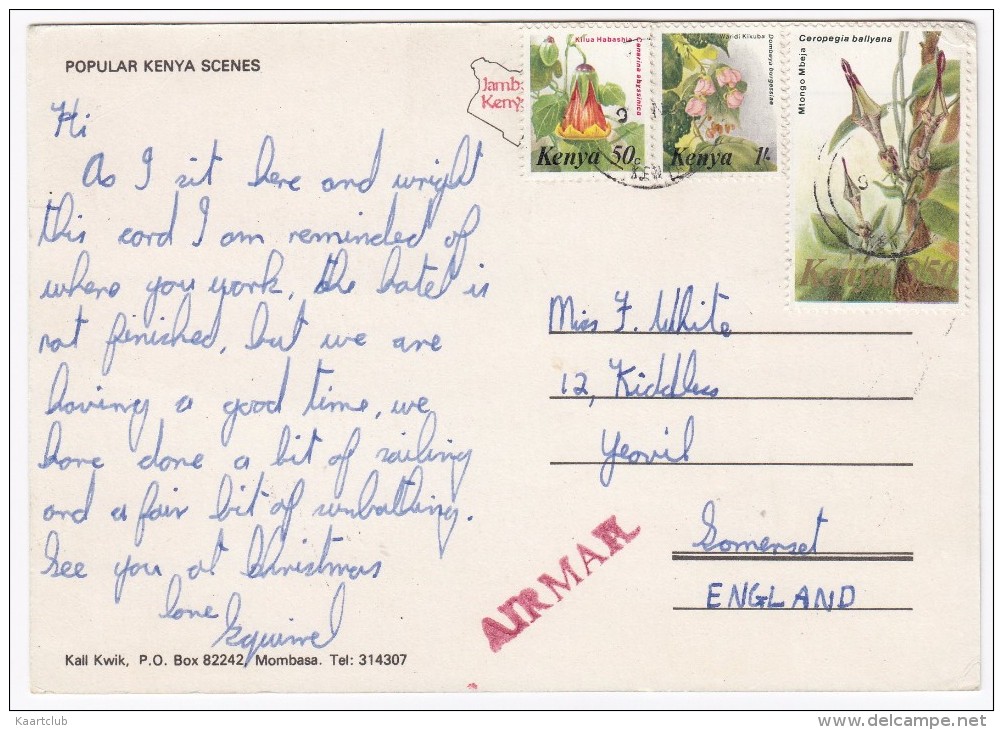 POPULAR KENYA SCENES
Hi
As I sit here and wright
this card I am reminded of
where you work, the hotel is
not finished, but we are
having a good time, we
have done a bit of sailing
and a fair bit of sunbathing.
See you at Christmas
love
Squirrel
Kall Kwik, P.O. Box 82242, Mombasa. Tel: 314307
Jamb
Keny
Kilua Habashia
Canarina abyssinica
Kenya 50c
Wandi Kikuba
Dombeya burgessiae
Kenya 1/-
Ceropegia ballyana
Mtongo Mbeja
Kenya /50
Miss F. White
12, Kiddles
Yeovil
Somerset
ENGLAND
AIRMAIL
Kaartclub
www.delcampe.net